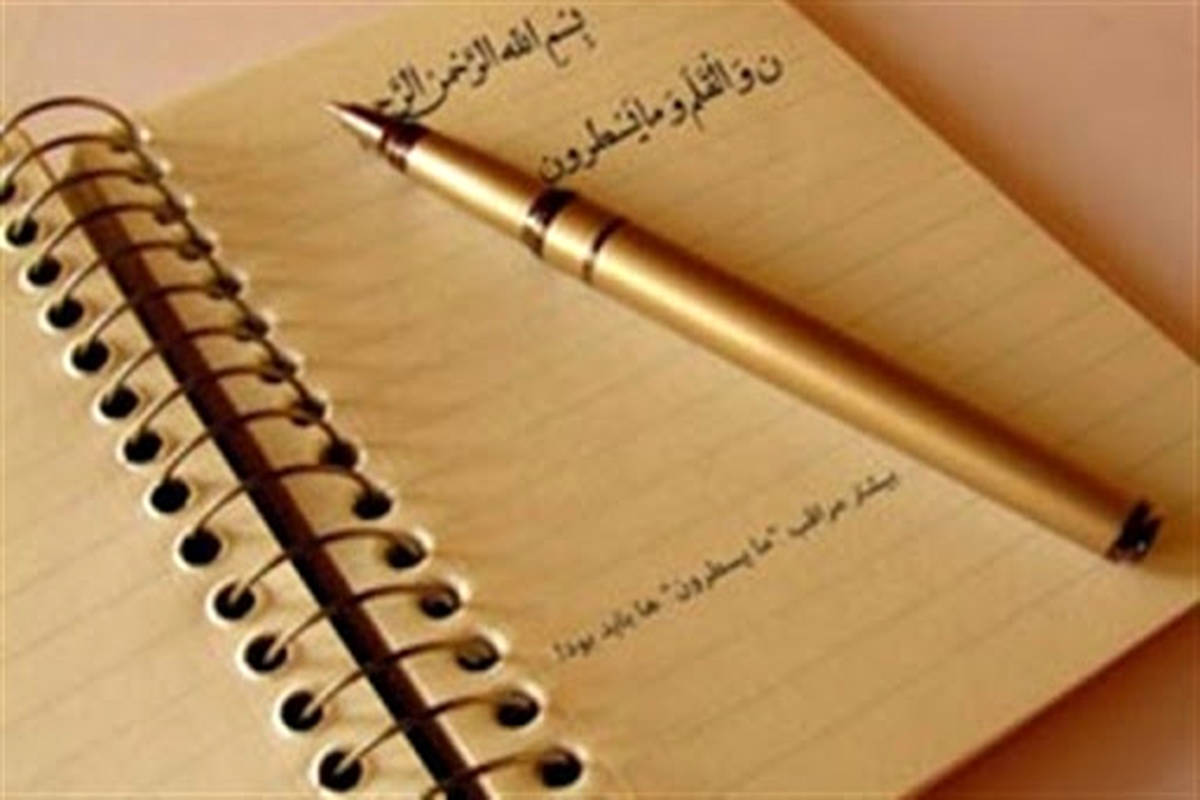 بِسْمِ اللهِ الرَّحْمنِ الرَّحـ
ن وَالْقَلَمِ وَ مَا يَسْطُرُونَ
بیشتر مراقب "ما یسطرون" ها باید بود!